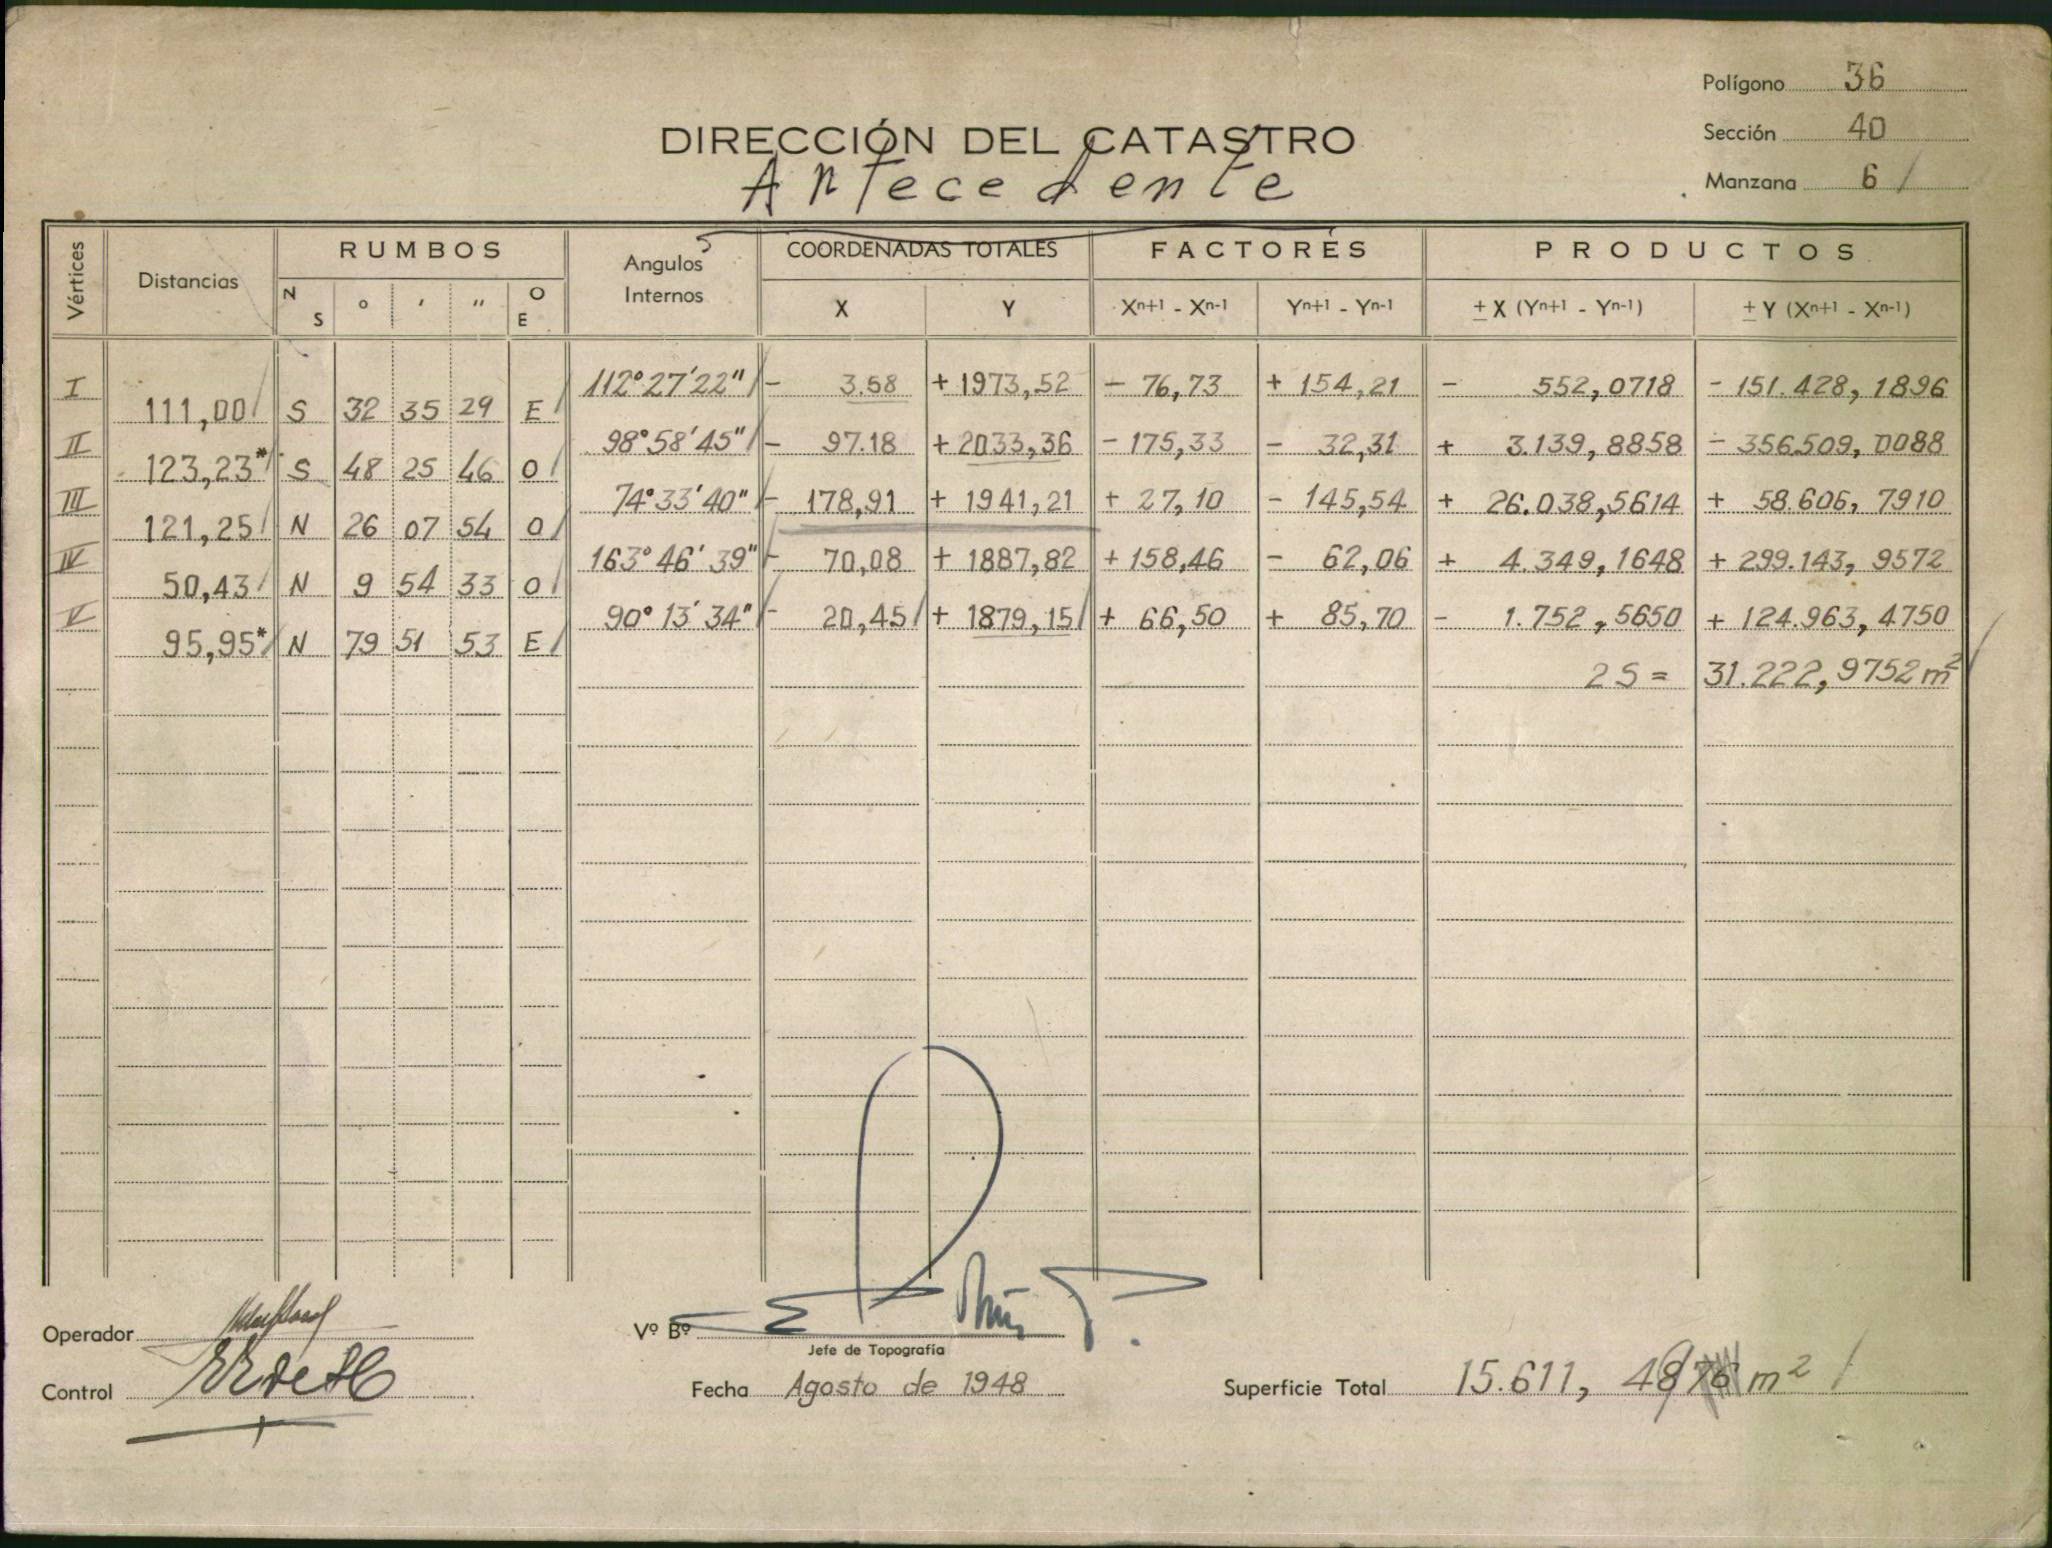 Polígono 36
DIRECCIÓN DEL CATASTRO
Sección 40
Antecedente
Manzana 6 /
Vértices Distancias RUMBOS Angulos Internos COORDENADAS TOTALES FACTORES PRODUCTOS
N S ° ′ ″ O E X Y Xn+1 - Xn-1 Yn+1 - Yn-1 ± X (Yn+1 - Yn-1) ± Y (Xn+1 - Xn-1)
I 112° 27' 22" - 3.58 + 1973,52 - 76,73 + 154,21 - 552,0718 - 151.428,1896
111,00 S 32 35 29 E
II 98° 58' 45" - 97.18 + 2033,36 - 175,33 - 32,31 + 3.139,8858 - 356.509,0088
123,23* S 48 25 46 O
III 74° 33' 40" - 178,91 + 1941,21 + 27,10 - 145,54 + 26.038,5614 + 58.606,7910
121,25 N 26 07 54 O
IV 163° 46' 39" - 70,08 + 1887,82 + 158,46 - 62,06 + 4.349,1648 + 299.143,9572
50,43 N 9 54 33 O
V 90° 13' 34" - 20,45 + 1879,15 + 66,50 + 85,70 - 1.752,5650 + 124.963,4750
95,95* N 79 51 53 E
2S = 31.222,9752 m²
Operador
Vº Bº
Jefe de Topografía
Control
Fecha Agosto de 1948
Superficie Total 15.611, 4876 m² /